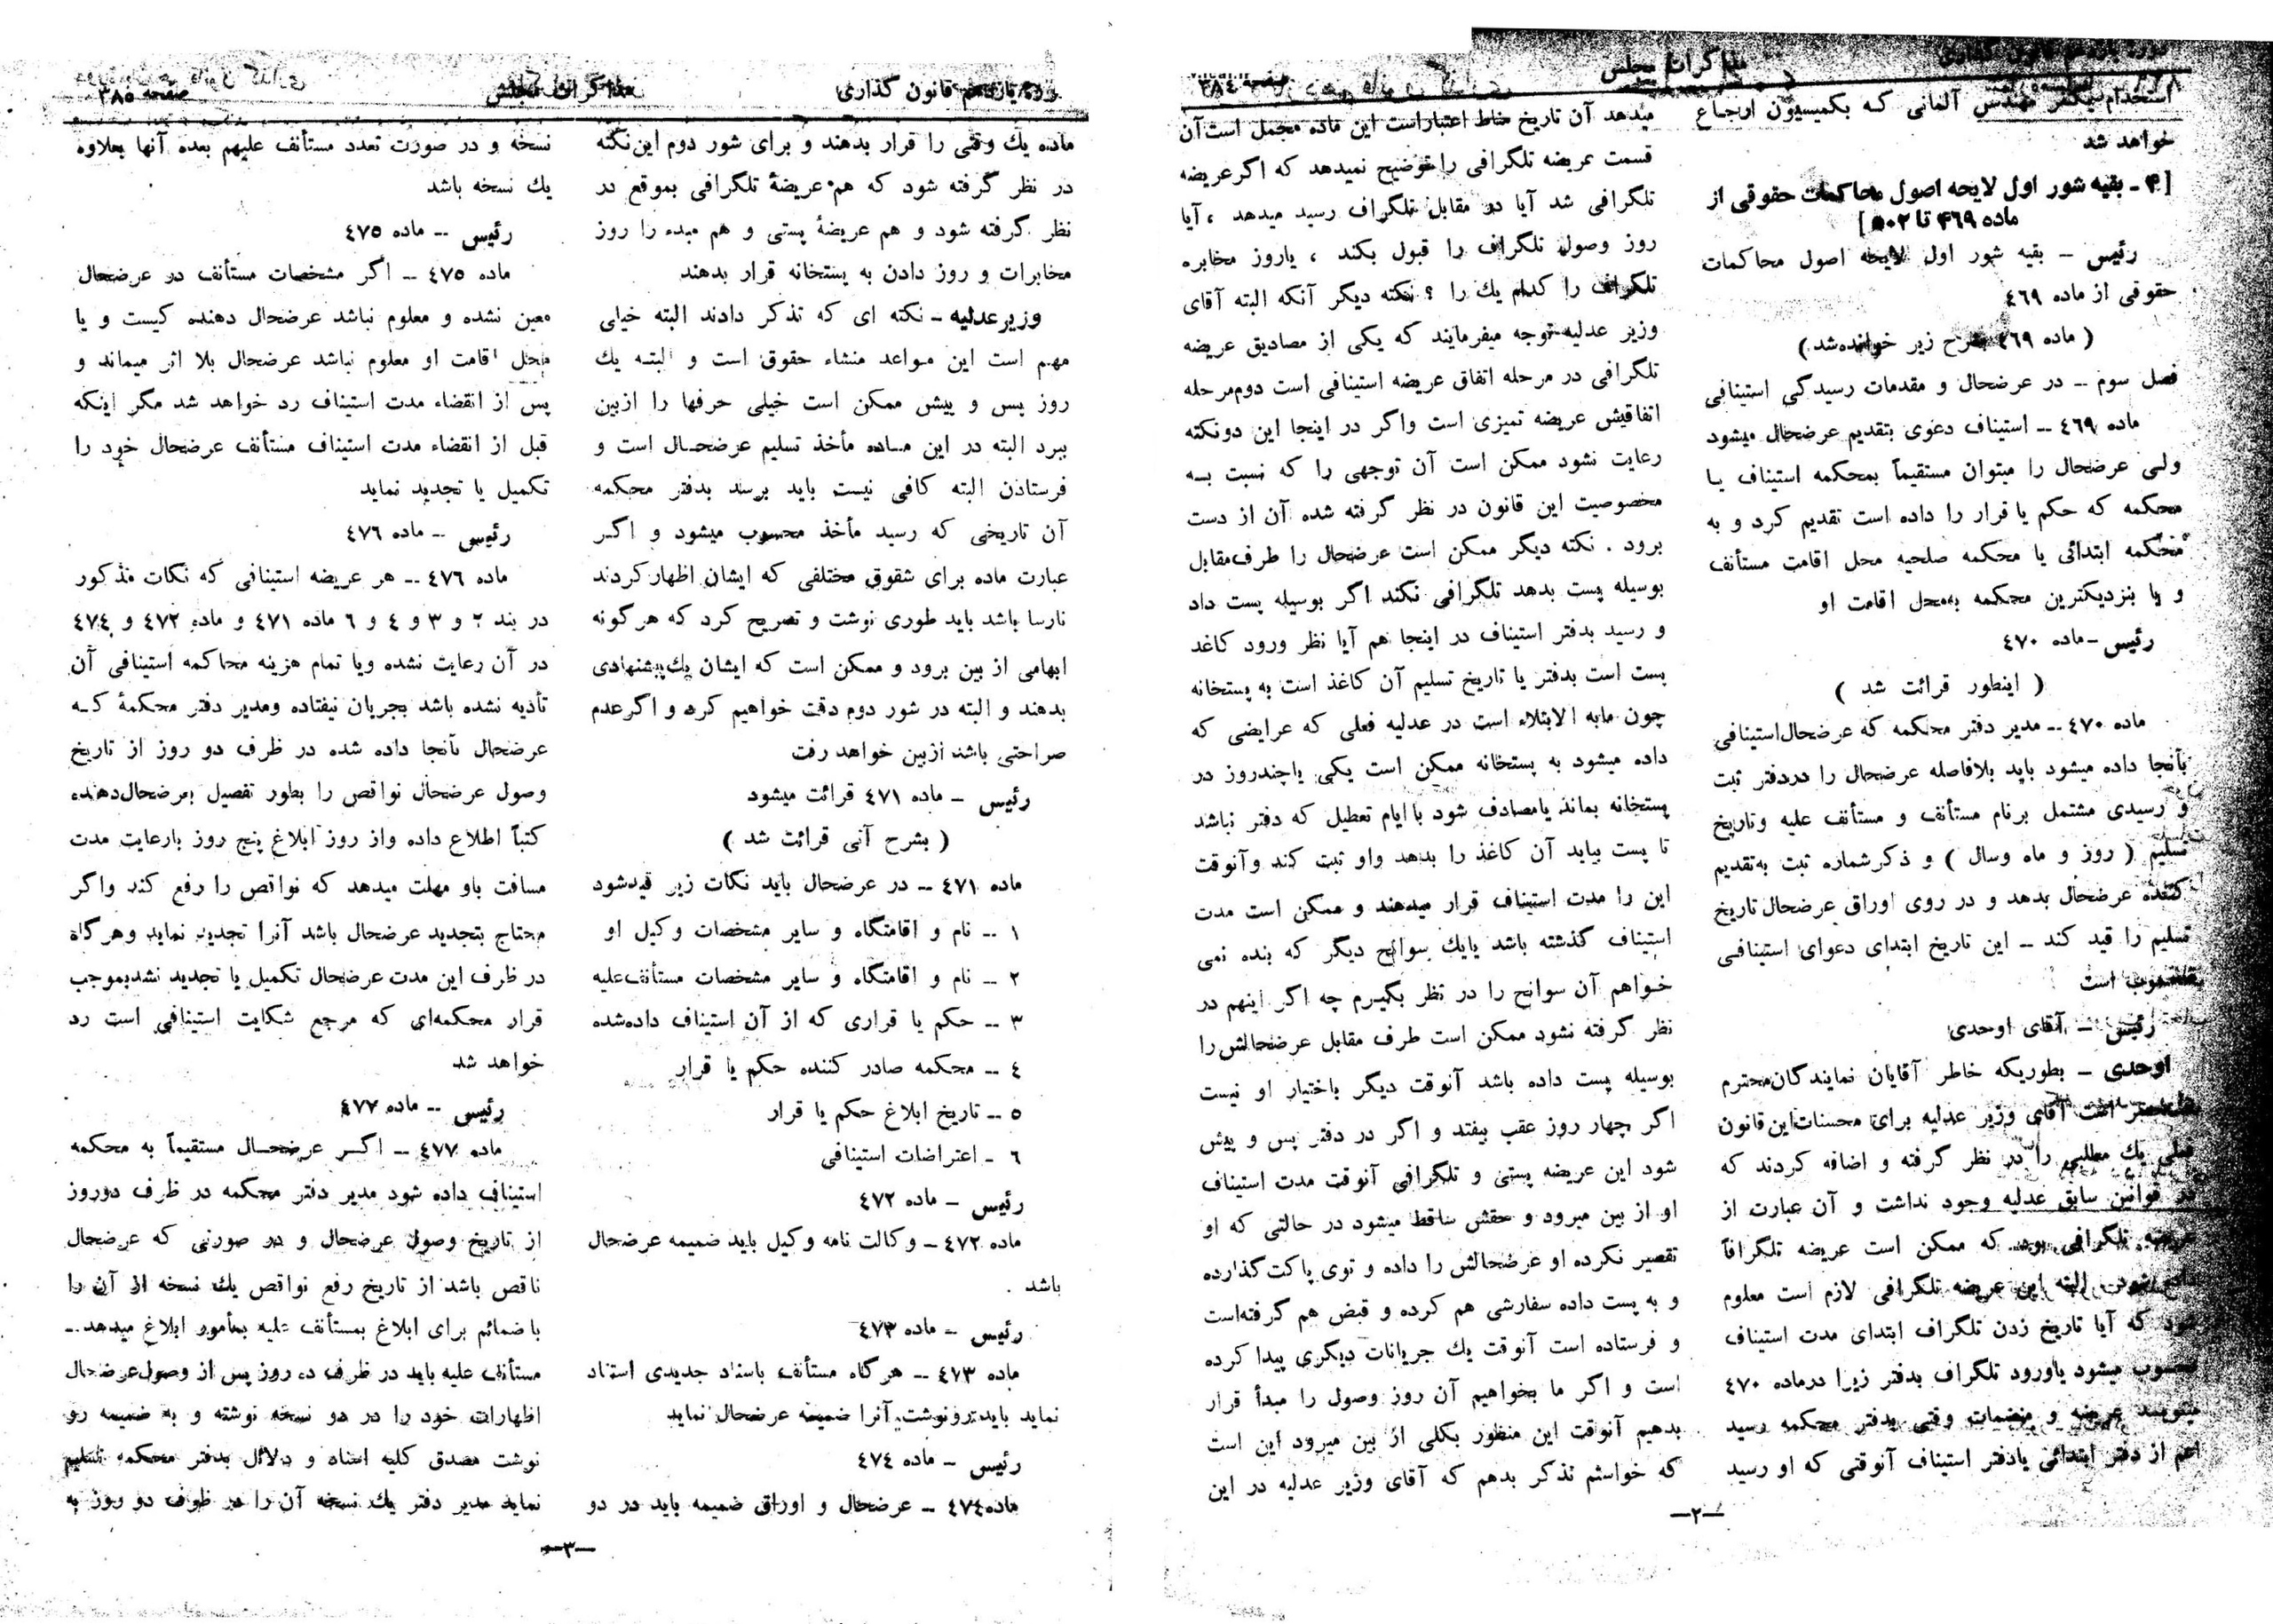 مذاکرات مجلس
صفحه ۳۸٤
استخدام یکنفر مهندس آلمانی که بکمیسیون ارجاع
خواهد شد
[۴ ـ بقیه شور اول لایحه اصول محاکمات حقوقی از
ماده ۴۶۹ تا ۵۰۲]
رئیس ــ بقیه شور اول لایحه اصول محاکمات
حقوقی از ماده ٤٦٩
( ماده ٤٦٩ بشرح زیر خوانده‌شد )
فصل سوم ــ در عرضحال و مقدمات رسیدگی استینافی
ماده ٤٦٩ ــ استیناف دعوی بتقدیم عرضحال میشود
ولی عرضحال را میتوان مستقیماً بمحکمه استیناف یا
محکمه که حکم یا قرار را داده است تقدیم کرد و به
محکمه ابتدائی یا محکمه صلحیه محل اقامت مستأنف
و یا بنزدیکترین محکمه بمحل اقامت او
رئیس ــ ماده ٤٧٠
( اینطور قرائت شد )
ماده ٤٧٠ ــ مدیر دفتر محکمه که عرضحال استینافی
بآنجا داده میشود باید بلافاصله عرضحال را دردفتر ثبت
و رسیدی مشتمل برنام مستأنف و مستأنف علیه وتاریخ
تسلیم ( روز و ماه وسال ) و ذکرشماره ثبت به‌تقدیم
کننده عرضحال بدهد و در روی اوراق عرضحال تاریخ
تسلیم را قید کند ــ این تاریخ ابتدای دعوای استینافی
محسوب است
رئیس ــ آقای اوحدی
اوحدی ــ بطوریکه خاطر آقایان نمایندگان محترم
است آقای وزیر عدلیه برای محسنات این قانون
یك مطلبی را در نظر گرفته و اضافه کردند که
در قوانین سابق عدلیه وجود نداشت و آن عبارت از
عریضه تلگرافی بود که ممکن است عریضه تلگرافاً
البته این عریضه تلگرافی لازم است معلوم
شود که آیا تاریخ زدن تلگراف ابتدای مدت استیناف
محسوب میشود یاورود تلگراف بدفتر زیرا درماده ٤٧٠
مینویسد عریضه و منضمات وقتی بدفتر محکمه رسید
اعم از دفتر ابتدائی یادفتر استیناف آنوقتی که او رسید
میدهد آن تاریخ مناط اعتباراست این ماده مجمل است‌آن
قسمت عریضه تلگرافی را توضیح نمیدهد که اگرعریضه
تلگرافی شد آیا در مقابل تلگراف رسید میدهد ، آیا
روز وصول تلگراف را قبول بکند ، یاروز مخابره
تلگراف را کدام یك را ؟ نکته دیگر آنکه البته آقای
وزیر عدلیه توجه میفرمایند که یکی از مصادیق عریضه
تلگرافی در مرحله اتفاق عریضه استینافی است دوم‌مرحله
اتفاقیش عریضه تمیزی است واگر در اینجا این دونکته
رعایت نشود ممکن است آن توجهی را که نسبت به
مخصوصیت این قانون در نظر گرفته شده آن از دست
برود . نکته دیگر ممکن است عرضحال را طرف‌مقابل
بوسیله پست بدهد تلگرافی نکند اگر بوسیله پست داد
و رسید بدفتر استیناف در اینجا هم آیا نظر ورود کاغد
پست است بدفتر یا تاریخ تسلیم آن کاغذ است به پستخانه
چون مابه الابتلاء است در عدلیه فعلی که عرایضی که
داده میشود به پستخانه ممکن است یکی یاچندروز در
پستخانه بماند یامصادف شود با ایام تعطیل که دفتر نباشد
تا پست بیاید آن کاغذ را بدهد واو ثبت کند وآنوقت
این را مدت استیناف قرار میدهند و ممکن است مدت
استیناف گذشته باشد یایك سوانح دیگر که بنده نمی
خواهم آن سوانح را در نظر بگیرم چه اگر اینهم در
نظر گرفته نشود ممکن است طرف مقابل عرضحالش را
بوسیله پست داده باشد آنوقت دیگر باختیار او نیست
اگر چهار روز عقب بیفتد و اگر در دفتر پس و پیش
شود این عریضه پستی و تلگرافی آنوقت مدت استیناف
او از بین میرود و حقش ساقط میشود در حالتی که او
تقصیر نکرده او عرضحالش را داده و توی پاکت گذارده
و به پست داده سفارشی هم کرده و قبض هم گرفته‌است
و فرستاده است آنوقت یك جریانات دیگری پیدا کرده
است و اگر ما بخواهیم آن روز وصول را مبدأ قرار
بدهیم آنوقت این منظور بکلی از بین میرود این است
که خواستم تذکر بدهم که آقای وزیر عدلیه در این
—۲—
دوره یازدهم قانون گذاری
مذاکرات مجلس
صفحه ۳۸۵
ماده یك وقتی را قرار بدهند و برای شور دوم این نکته
در نظر گرفته شود که هم عریضهٔ تلگرافی بموقع در
نظر گرفته شود و هم عریضهٔ پستی و هم مبدء را روز
مخابرات و روز دادن به پستخانه قرار بدهند
وزیرعدلیه ــ نکته ای که تذکر دادند البته خیلی
مهم است این مواعد منشاء حقوق است و البته یك
روز پس و پیش ممکن است خیلی حرفها را ازبین
ببرد البته در این ماده مأخذ تسلیم عرضحال است و
فرستادن البته کافی نیست باید برسد بدفتر محکمه
آن تاریخی که رسید مأخذ محسوب میشود و اگر
عبارت ماده برای شقوق مختلفی که ایشان اظهارکردند
نارسا باشد باید طوری نوشت و تصریح کرد که هرگونه
ابهامی از بین برود و ممکن است که ایشان یك‌پیشنهادی
بدهند و البته در شور دوم دقت خواهیم کرد و اگرعدم
صراحتی باشد ازبین خواهد رفت
رئیس ــ ماده ٤٧١ قرائت میشود
( بشرح آتی قرائت شد )
ماده ٤٧١ ــ در عرضحال باید نکات زیر قیدشود
١ ــ نام و اقامتگاه و سایر مشخصات وکیل او
٢ ــ نام و اقامتگاه و سایر مشخصات مستأنف‌علیه
٣ ــ حکم یا قراری که از آن استیناف داده‌شده
٤ ــ محکمه صادر کننده حکم یا قرار
٥ ــ تاریخ ابلاغ حکم یا قرار
٦ ــ اعتراضات استینافی
رئیس ــ ماده ٤٧٢
ماده ٤٧٢ ــ وکالت نامه وکیل باید ضمیمه عرضحال
باشد .
رئیس ــ ماده ٤٧٣
ماده ٤٧٣ ــ هرگاه مستأنف باسناد جدیدی استناد
نماید باید رونوشت آنرا ضمیمه عرضحال نماید
رئیس ــ ماده ٤٧٤
ماده٤٧٤ ــ عرضحال و اوراق ضمیمه باید در دو
نسخه و در صورت تعدد مستأنف علیهم بعده آنها بعلاوه
یك نسخه باشد
رئیس ــ ماده ٤٧٥
ماده ٤٧٥ ــ اگر مشخصات مستأنف در عرضحال
معین نشده و معلوم نباشد عرضحال دهنده کیست و یا
محل اقامت او معلوم نباشد عرضحال بلا اثر میماند و
پس از انقضاء مدت استیناف رد خواهد شد مگر اینکه
قبل از انقضاء مدت استیناف مستأنف عرضحال خود را
تکمیل یا تجدید نماید
رئیس ــ ماده ٤٧٦
ماده ٤٧٦ ــ هر عریضه استینافی که نکات مذکور
در بند ٢ و ٣ و ٤ و ٦ ماده ٤٧١ و ماده ٤٧٢ و ٤٧٤
در آن رعایت نشده ویا تمام هزینه محاکمه استینافی آن
تأدیه نشده باشد بجریان نیفتاده ومدیر دفتر محکمهٔ که
عرضحال بآنجا داده شده در ظرف دو روز از تاریخ
وصول عرضحال نواقص را بطور تفصیل بعرضحال‌دهنده
کتباً اطلاع داده واز روز ابلاغ پنج روز بارعایت مدت
مسافت باو مهلت میدهد که نواقص را رفع کند واگر
محتاج بتجدید عرضحال باشد آنرا تجدید نماید وهرگاه
در ظرف این مدت عرضحال تکمیل یا تجدید نشدبموجب
قرار محکمه‌ای که مرجع شکایت استینافی است رد
خواهد شد
رئیس ــ ماده ٤٧٧
ماده ٤٧٧ ــ اگر عرضحال مستقیماً به محکمه
استیناف داده شود مدیر دفتر محکمه در ظرف دوروز
از تاریخ وصول عرضحال و در صورتی که عرضحال
ناقص باشد از تاریخ رفع نواقص یك نسخه از آن را
با ضمائم برای ابلاغ بمستأنف علیه بمأمور ابلاغ میدهد ــ
مستأنف علیه باید در ظرف ده روز پس از وصول‌عرضحال
اظهارات خود را در دو نسخه نوشته و به ضمیمه رو
نوشت مصدق کلیه اسناد و دلائل بدفتر محکمه تسلیم
نماید مدیر دفتر یك نسخه آن را در ظرف دو روز به
—۳—